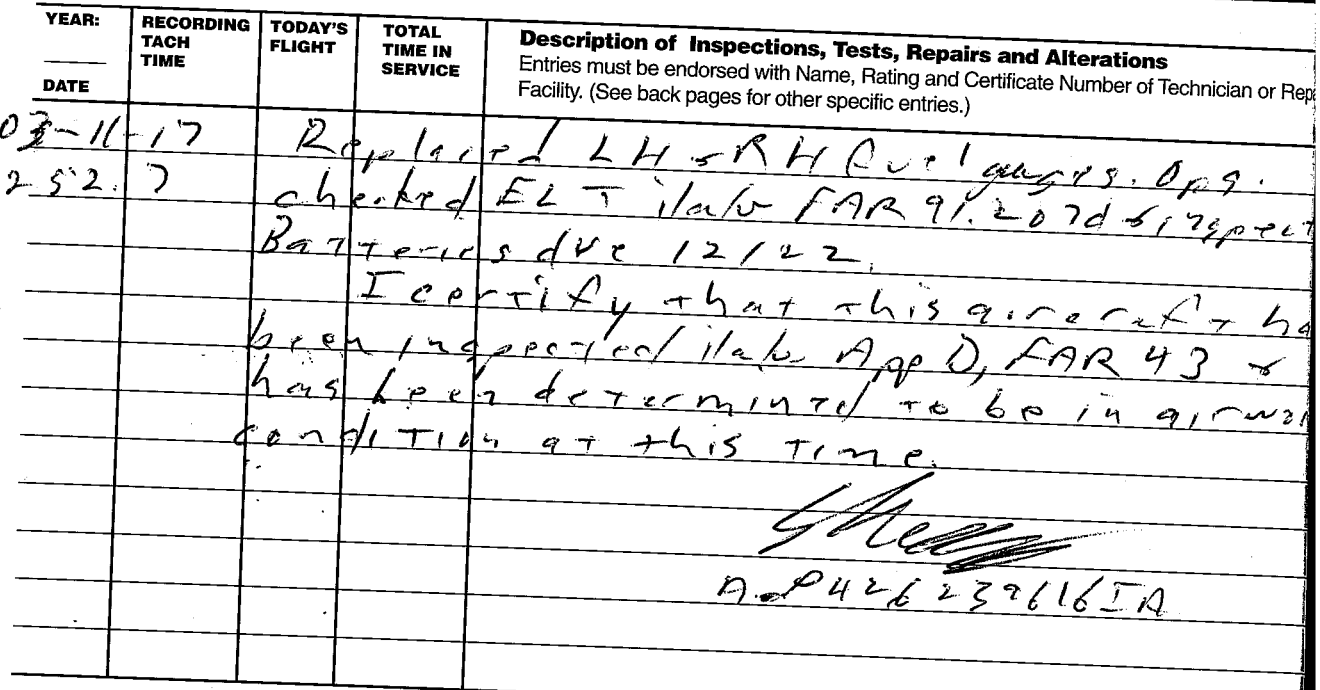 YEAR:
DATE
RECORDING TACH TIME
TODAY'S FLIGHT
TOTAL TIME IN SERVICE
Description of Inspections, Tests, Repairs and Alterations
Entries must be endorsed with Name, Rating and Certificate Number of Technician or Rep
Facility. (See back pages for other specific entries.)
03-11-17 Replaced LH & RH fuel gauges. Ops.
252.7 checked ELT i/a/w FAR 91.207d & inspect
Batteries due 12/22.
I certify that this aircraft ha
been inspected i/a/w App D, FAR 43 &
has been determined to be in airwor
condition at this time.
A&P 426239616IA